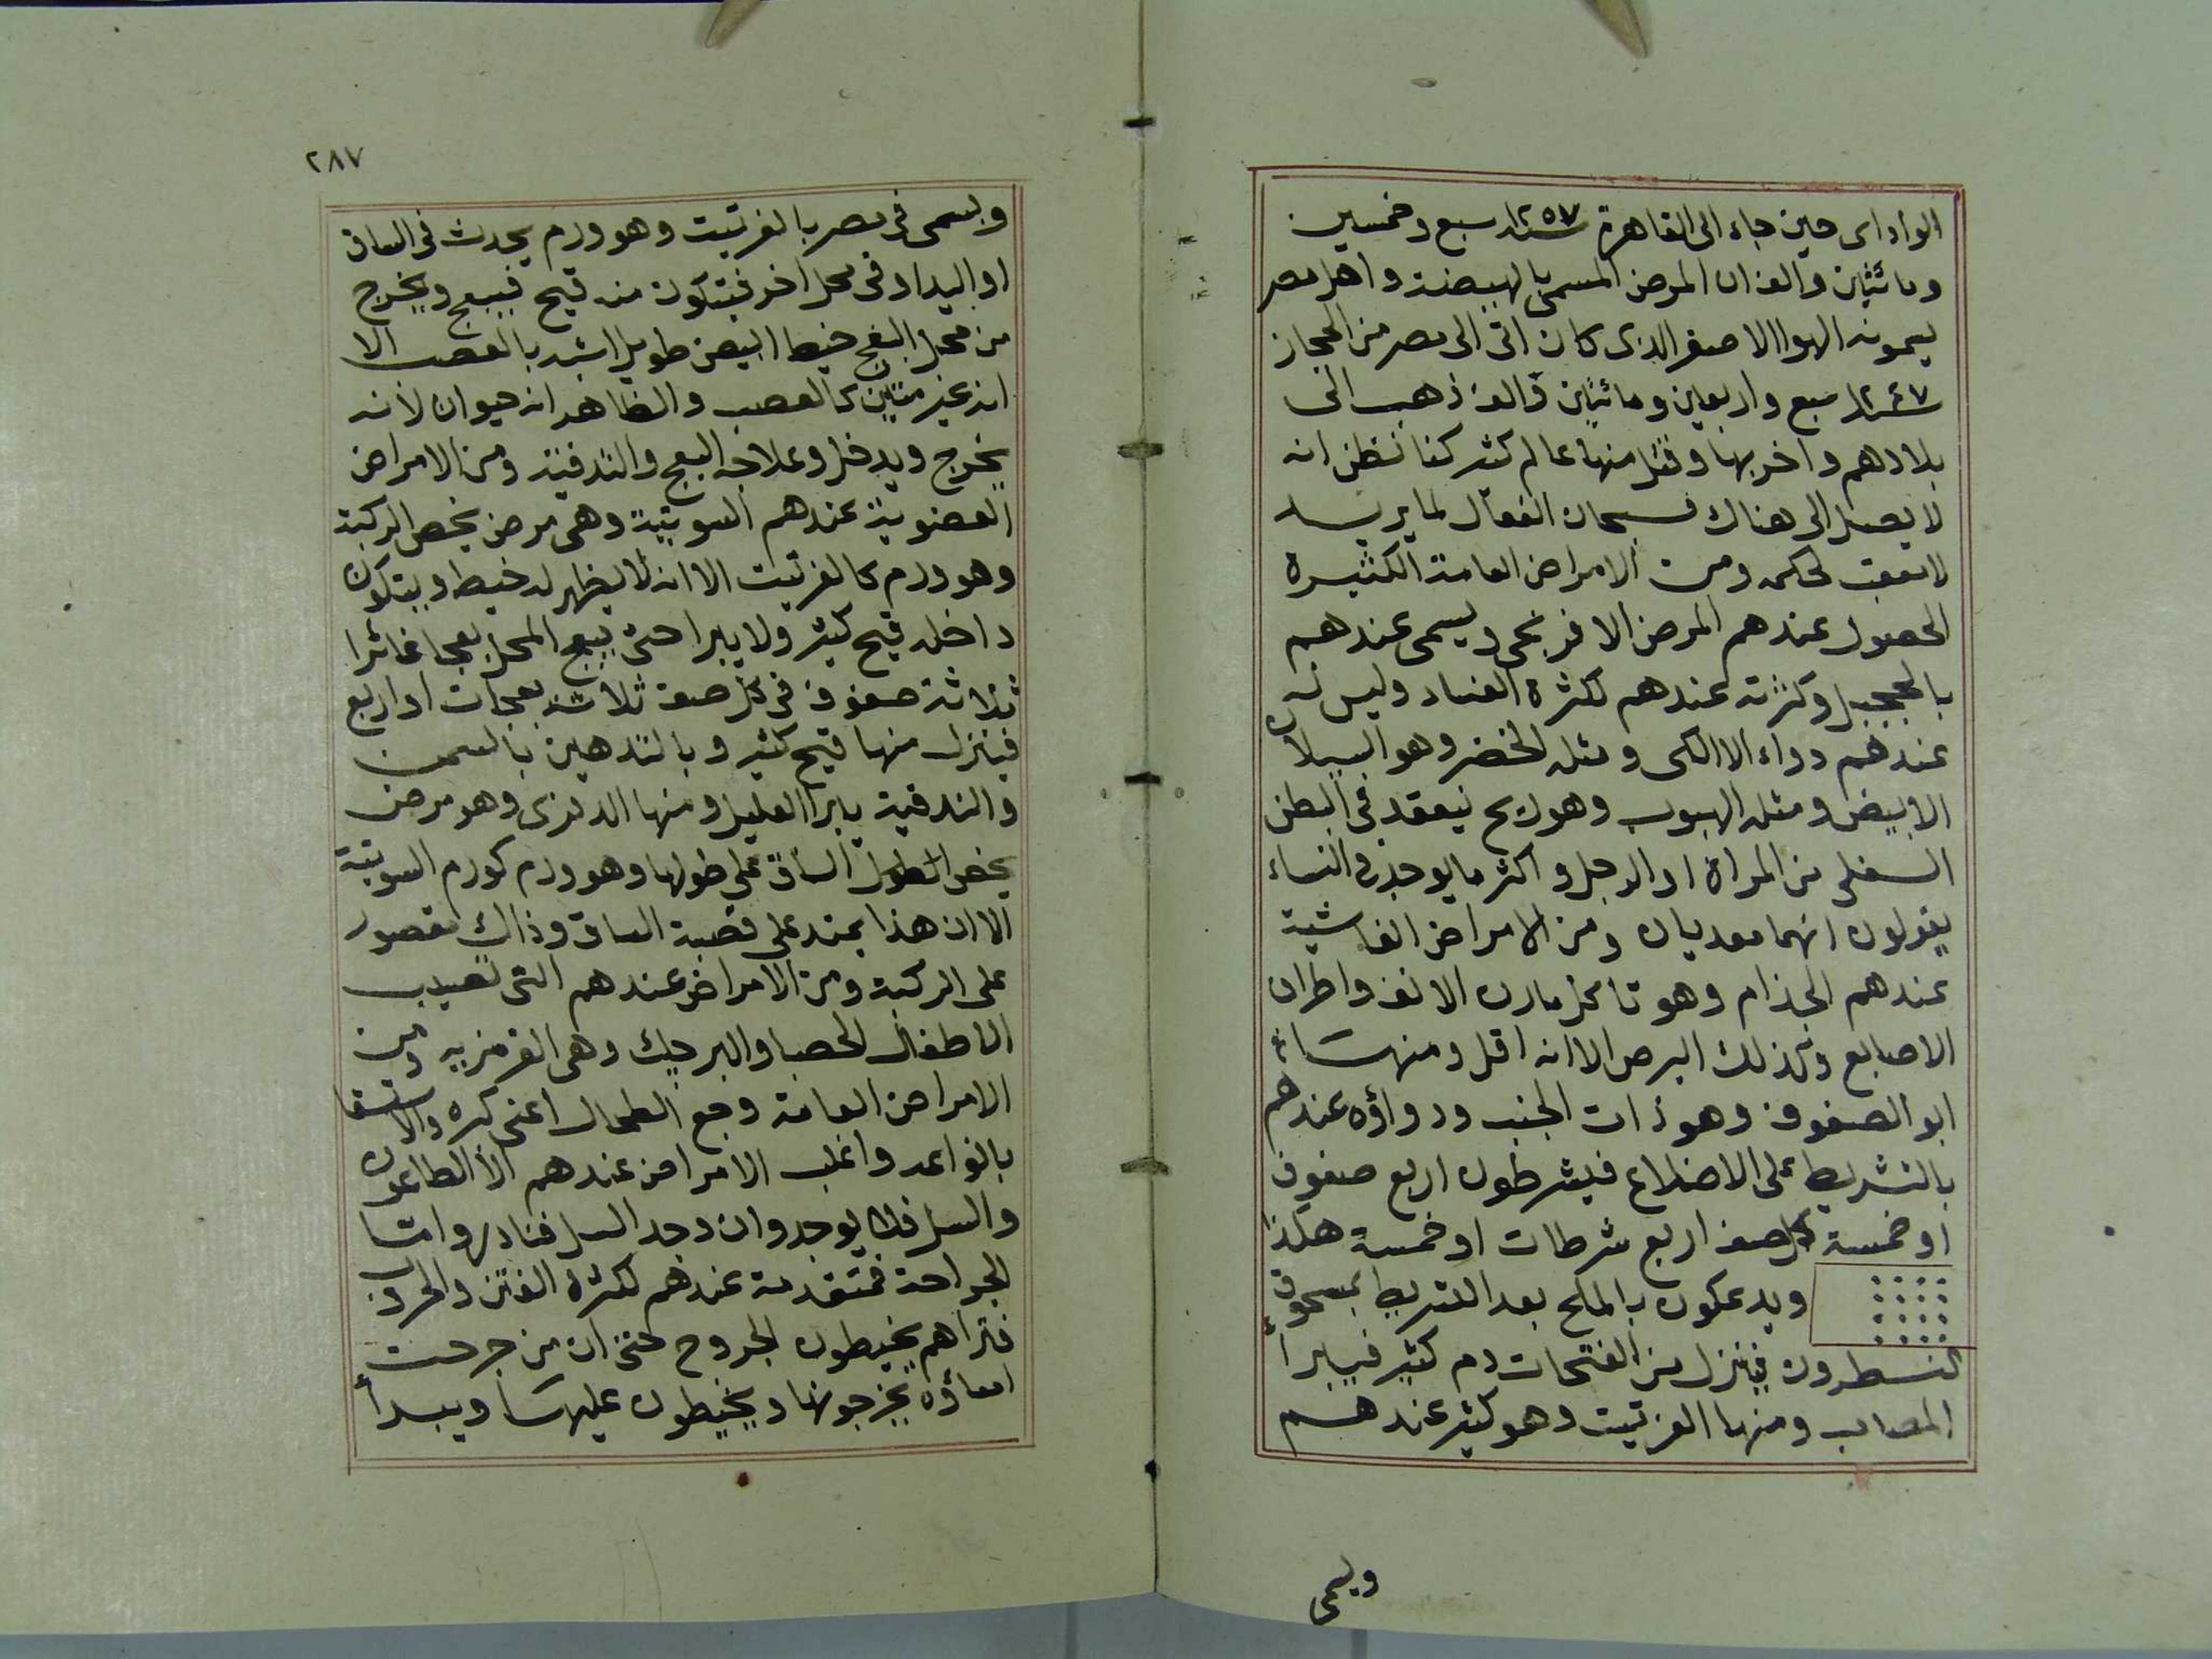 الوادای حين جاء الی القاهرة سنة ١٢٥٧ سبع وخمسين
ومائتين والف ان المرض المسمی بالهيضة واهل مصر
يسمونه الهوا الاصفر الذی كان اتی الی مصر من الحجاز
سنة ١٢٤٧ سبع واربعين ومائتين والف ذهب الی
بلادهم واخربها وقتل منها عالم كثير كنا نظن انه
لا يصل الی هناك فسبحان الفعال لما يريد
لا معقب لحكمه ومن الامراض العامة الكثيرة
الحصول عندهم المرض الافرنجی ويسمی عندهم
بالجحيل وكثرته عندهم لكثرة الفساد وليس له
عندهم دواء الا الكی ومثله الخضر وهو السيلان
الابيض ومثله الهبوب وهو ريح ينعقد فی البطن
السفلی من المراة او الرجل واكثر ما يوجد فی النساء
يقولون انهما معديان ومن الامراض الفاشية
عندهم الجذام وهو تاكل مارن الانف واطراف
الاصابع وكذلك البرص الا انه اقل ومنها
ابو الصفوف وهو ذات الجنب ودواؤه عندهم
بالتشريط علی الاضلاع فيشرطون اربع صفوف
او خمسة كل صف اربع شرطات او خمسة هكذا
ويدعكون بالملح بعد التشريط بمسحوق
النطرون فينزل من الفتحات دم كثير فيبرأ
المصاب ومنها الفرتيت وهو كثير عندهم
ويسمی
٢٨٧
ويسمی فی مصر بالفرتيت وهو ورم يحدث فی الساق
او اليد او فی محل اخر فيتكون منه قيح فيبعج ويخرج
من محل البعج خيط ابيض طويل اشبه بالعصب الا
انه غير متين كالعصب والظاهر انه حيوان لانه
يخرج ويدخل وعلاجه البعج والتدفئة ومن الامراض
العضوية عندهم السوتية وهی مرض يخص الركبة
وهو ورم كالفرتيت الا انه لا يظهر له خيط ويتكون
داخله قيح كثير ولا يبرا حتی يبعج المحل بعجا غائرا
ثلاثة صفوف فی كل صف ثلاث بعجات او اربع
فينزل منها قيح كثير وبالتدهين بالسمن
والتدفية يبرا العليل ومنها الدوزی وهو مرض
يخص الساق علی طولها وهو ورم كورم السوتية
الا ان هذا يمتد علی قصبة الساق وذاك مقصور
علی الركبة ومن الامراض عندهم التی تصيب
الاطفال الحصبا والبرجيك وهی القرمزيه ومن
الامراض العامة وجع الطحال اعنی كبره والاستسقا
بانواعه واغلب الامراض عندهم الا الطاعون
والسل فلا يوجد وان وجد السل فنادر واما
الجراحة فمتقدمة عندهم لكثرة الفتن والحروب
فتراهم يخيطون الجروح حتی ان من جرحت
امعاؤه يخرجونها ويخيطون عليها ويبرأ